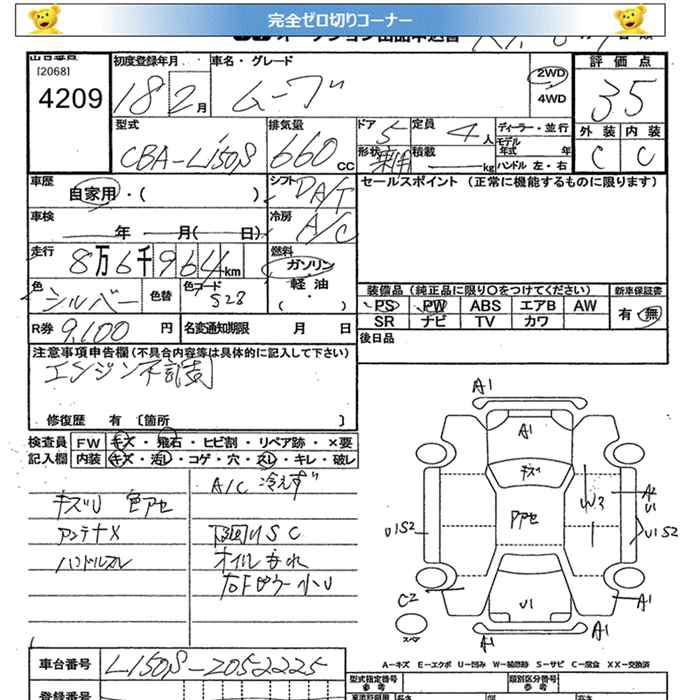 完全ゼロ切りコーナー
[2068]
4209
初度登録年月
18 2月
車名・グレード
ムーブ
2WD
4WD
評価点
35
外装 内装
C C
型式
CBA-L150S
排気量
660 CC
ドア 5
定員 4人
形状
積載 kg
ディーラー・並行
モデル年式 年
ハンドル 左・右
車歴
自家用・( )
シフト DA/T
セールスポイント (正常に機能するものに限ります)
車検
年 月( 日)
冷房 A/C
走行
8万6千964km
燃料
ガソリン
軽油
( )
色
シルバー
色替
色コード
S28
装備品 (純正品に限り○をつけてください)
新車保証書
PS PW ABS エアB AW
有・無
SR ナビ TV カワ
R券 9,100 円
名変通知期限 月 日
後日品
注意事項申告欄(不具合内容等は具体的に記入して下さい)
エンジン不調
修復歴 有 〔箇所 〕
検査員 FW キズ・飛石・ヒビ割・リペア跡・×要
記入欄 内装 キズ・汚レ・コゲ・穴・スレ・キレ・破レ
A/C 冷えず
キズU 色アセ
アンテナX
下回りSC
ハンドルスレ
オイルもれ
A1
A1
キズ
Pアセ
W3
A2
U1
U1S2
U1S2
C2
U1
A1
A1
A1
スペア
A-キズ E-エクボ U-凹み W-補修跡 S-サビ C-腐食 XX-交換済
車台番号
L150S-2052225
型式指定番号
参考
類別区分番号
参考
登録番号
長さ